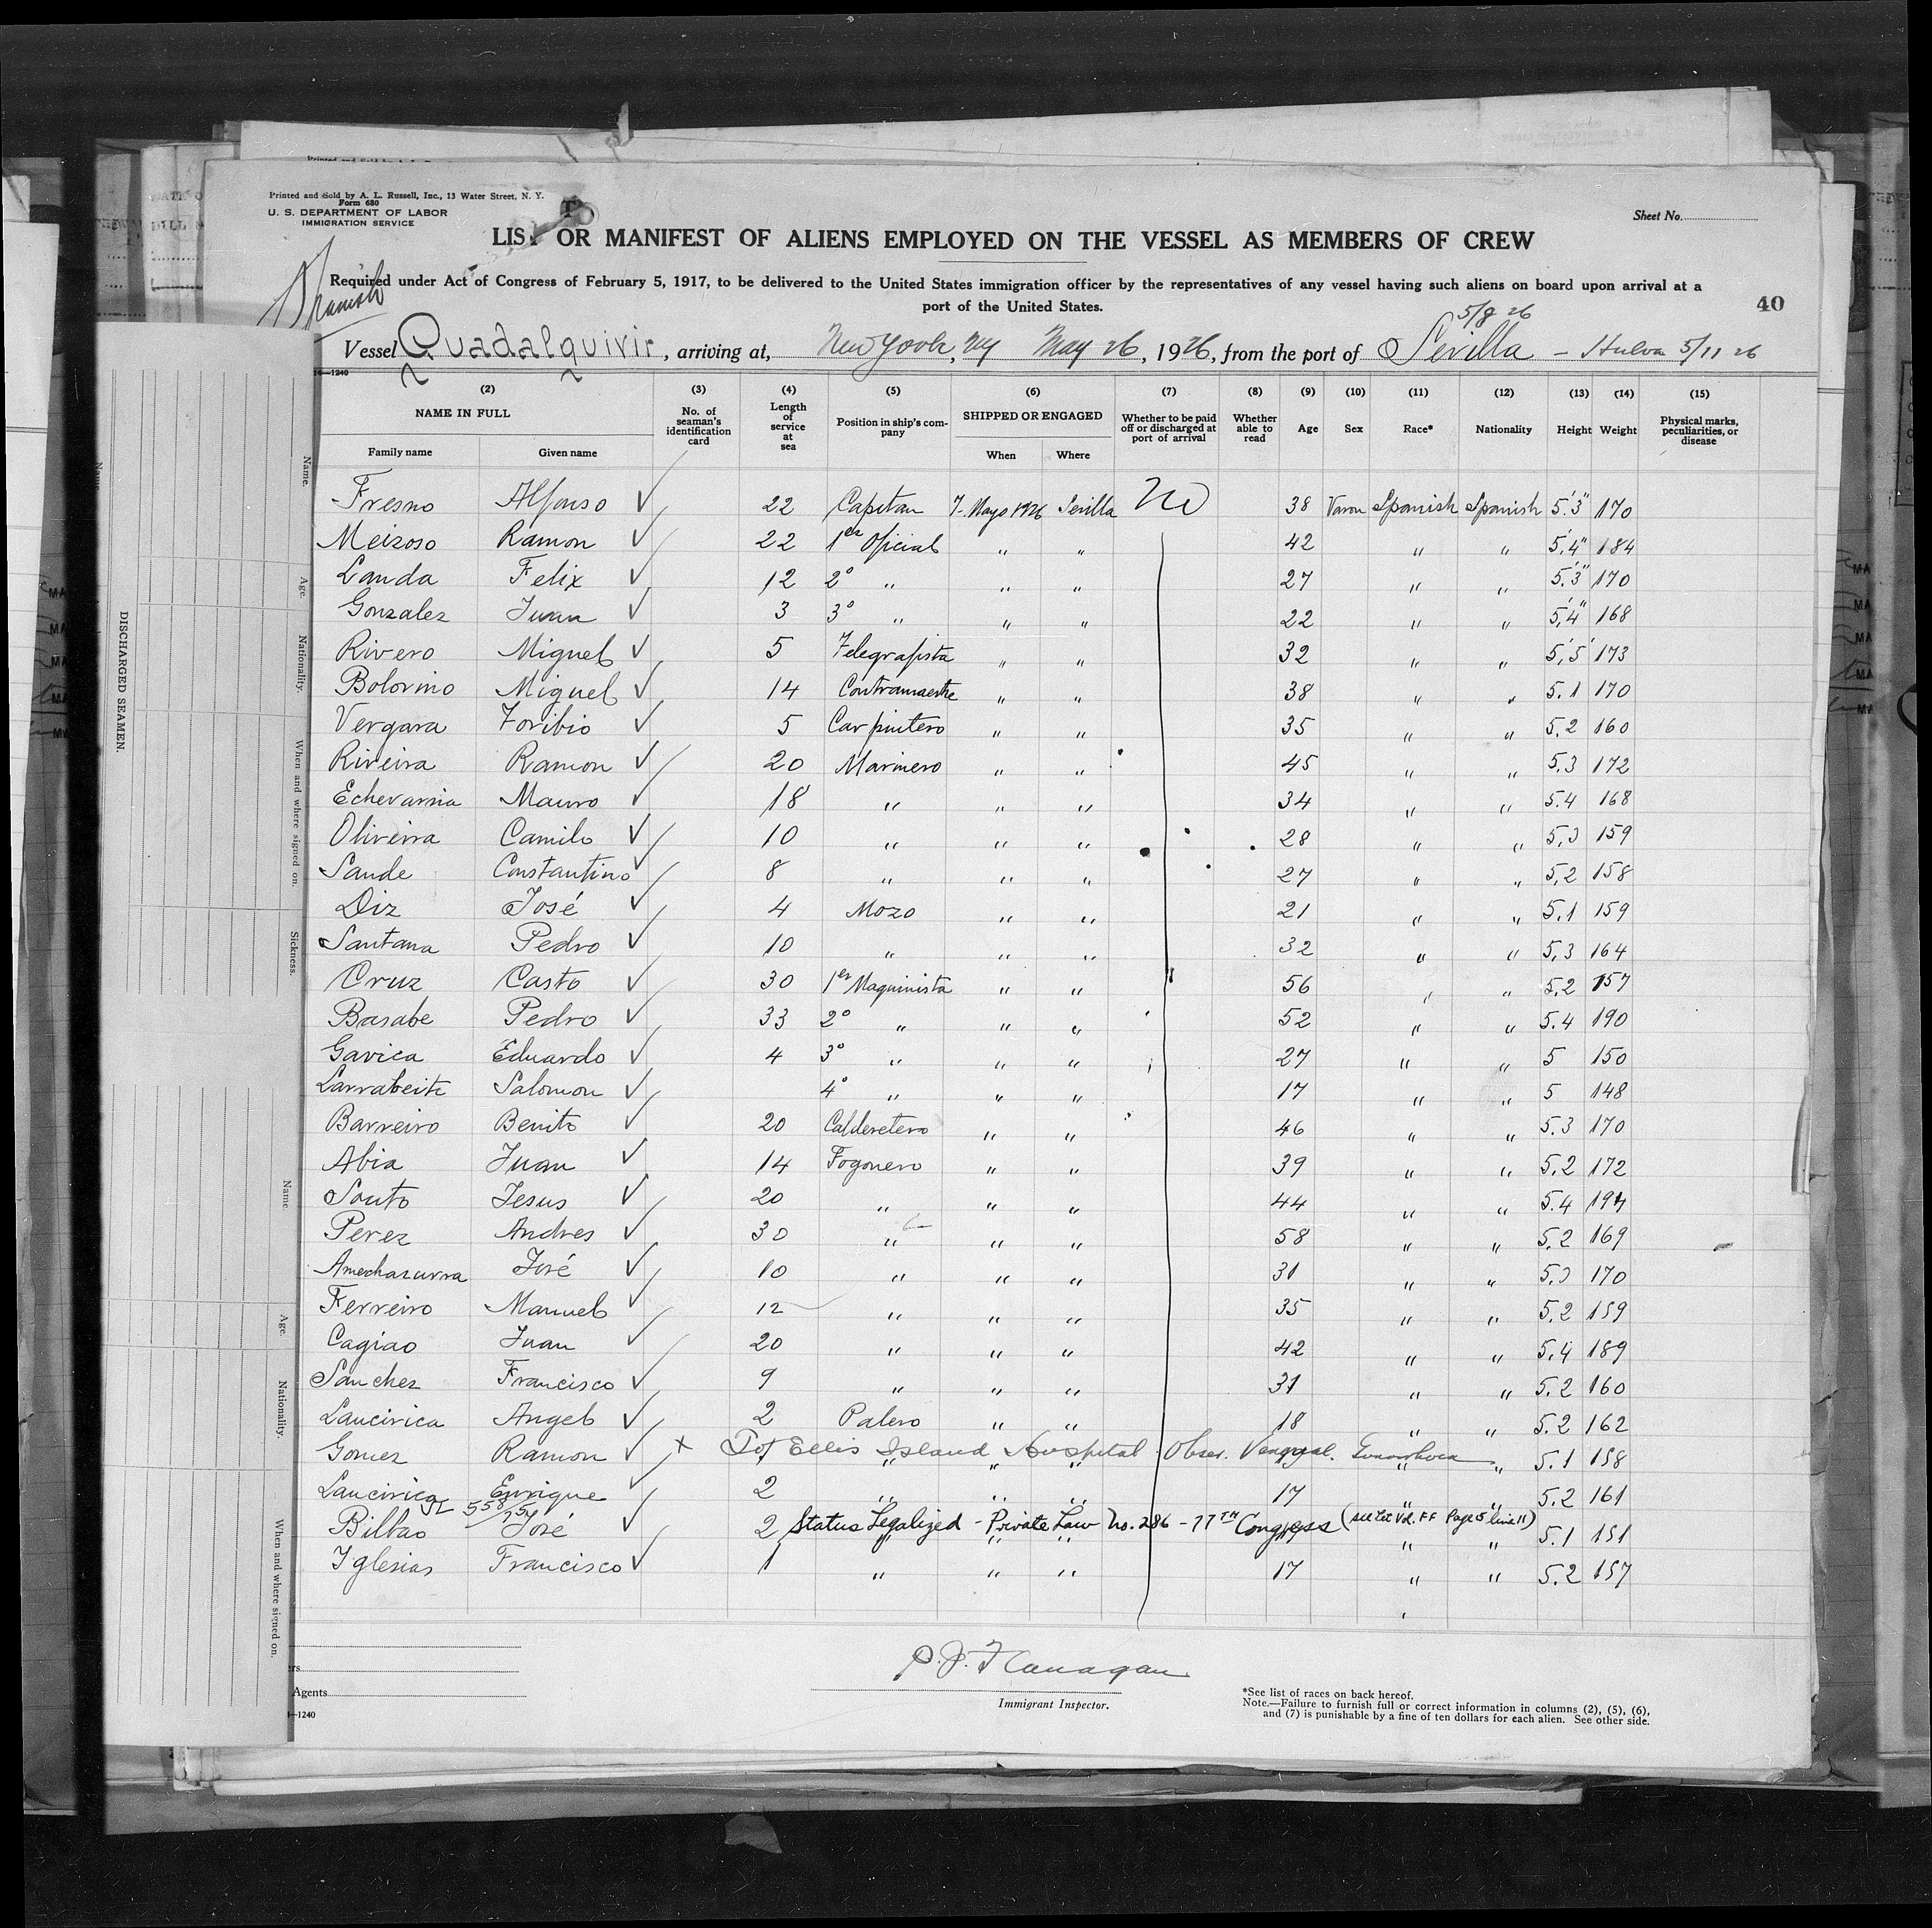 Printed and Sold by A. L. Russell, Inc., 13 Water Street, N. Y.
Form 680
U. S. DEPARTMENT OF LABOR
IMMIGRATION SERVICE
Sheet No.
LIST OR MANIFEST OF ALIENS EMPLOYED ON THE VESSEL AS MEMBERS OF CREW
Spanish
Required under Act of Congress of February 5, 1917, to be delivered to the United States immigration officer by the representatives of any vessel having such aliens on board upon arrival at a
port of the United States.
40
5/8 26
Vessel Guadalquivir, arriving at, New York, NY May 26, 1926, from the port of Sevilla - Hulva 5/11 26
(2) (3) (4) (5) (6) (7) (8) (9) (10) (11) (12) (13) (14) (15)
NAME IN FULL No. of seaman's identification card Length of service at sea Position in ship's company SHIPPED OR ENGAGED Whether to be paid off or discharged at port of arrival Whether able to read Age Sex Race* Nationality Height Weight Physical marks, peculiarities, or disease
Family name Given name When Where
Fresno Alfonso ✓ 22 Capitan 7-Mayo 1926 Sevilla No 38 Varon Spanish Spanish 5'.3" 170
Meizoso Ramon ✓ 22 1er Oficial " " 42 " " 5'.4" 184
Landa Felix ✓ 12 2° " " " 27 " " 5'.3" 170
Gonzalez Juan ✓ 3 3° " " " 22 " " 5'.4" 168
Rivero Miguel ✓ 5 Telegrafista " " 32 " " 5'.5' 173
Bolorino Miguel ✓ 14 Contramaestre " " 38 " " 5.1 170
Vergara Toribio ✓ 5 Carpintero " " 35 " " 5.2 160
Riveira Ramon ✓ 20 Marinero " " 45 " " 5.3 172
Echevarria Mauro ✓ 18 " " " 34 " " 5.4 168
Oliveira Camilo ✓ 10 " " " 28 " " 5.3 159
Sande Constantino ✓ 8 " " " 27 " " 5.2 158
Diz José ✓ 4 Mozo " " 21 " " 5.1 159
Santana Pedro ✓ 10 " " " 32 " " 5.3 164
Cruz Casto ✓ 30 1er Maquinista " " 56 " " 5.2 157
Basabe Pedro ✓ 33 2° " " " 52 " " 5.4 190
Gavica Eduardo ✓ 4 3° " " " 27 " " 5 150
Larrabeiti Salomon ✓ 4° " " " 17 " " 5 148
Barreiro Benito ✓ 20 Calderetero " " 46 " " 5.3 170
Abia Juan ✓ 14 Fogonero " " 39 " " 5.2 172
Souto Jesus ✓ 20 " " " 44 " " 5.4
Perez Andres ✓ 30 " " " 58 " " 5.2 169
Amechazurra José ✓ 10 " " " 31 " " 5.3 170
Ferreiro Manuel ✓ 12 " " " 35 " " 5.2 159
Cagiao Juan ✓ 20 " " " 42 " " 5.4 189
Sanchez Francisco ✓ 9 " " " 31 " " 5.2 160
Laucirica Angel ✓ 2 Palero " " 18 " " 5.2 162
Gomez Ramon ✓ x To Ellis Island Hospital. Obser. Venereal. Gonorrhoea " 5.1 158
Laucirica Enrique 2 " " " 17 " " 5.2 161
Bilbao José ✓ 2 Status Legalized - Private Law No. 286 - 77TH Congress (see Let Vol. FF Page 5 line 11) " " 5.1 151
Yglesias Francisco ✓ 1 " " " 17 " " 5.2 157
P. J. Flanagan
Immigrant Inspector.
Agents
—1240
*See list of races on back hereof.
Note.—Failure to furnish full or correct information in columns (2), (5), (6),
and (7) is punishable by a fine of ten dollars for each alien. See other side.
DISCHARGED SEAMEN.
Name.
Age.
Nationality.
When and where signed on.
Sickness.
Name.
Age.
Nationality.
When and where signed on.